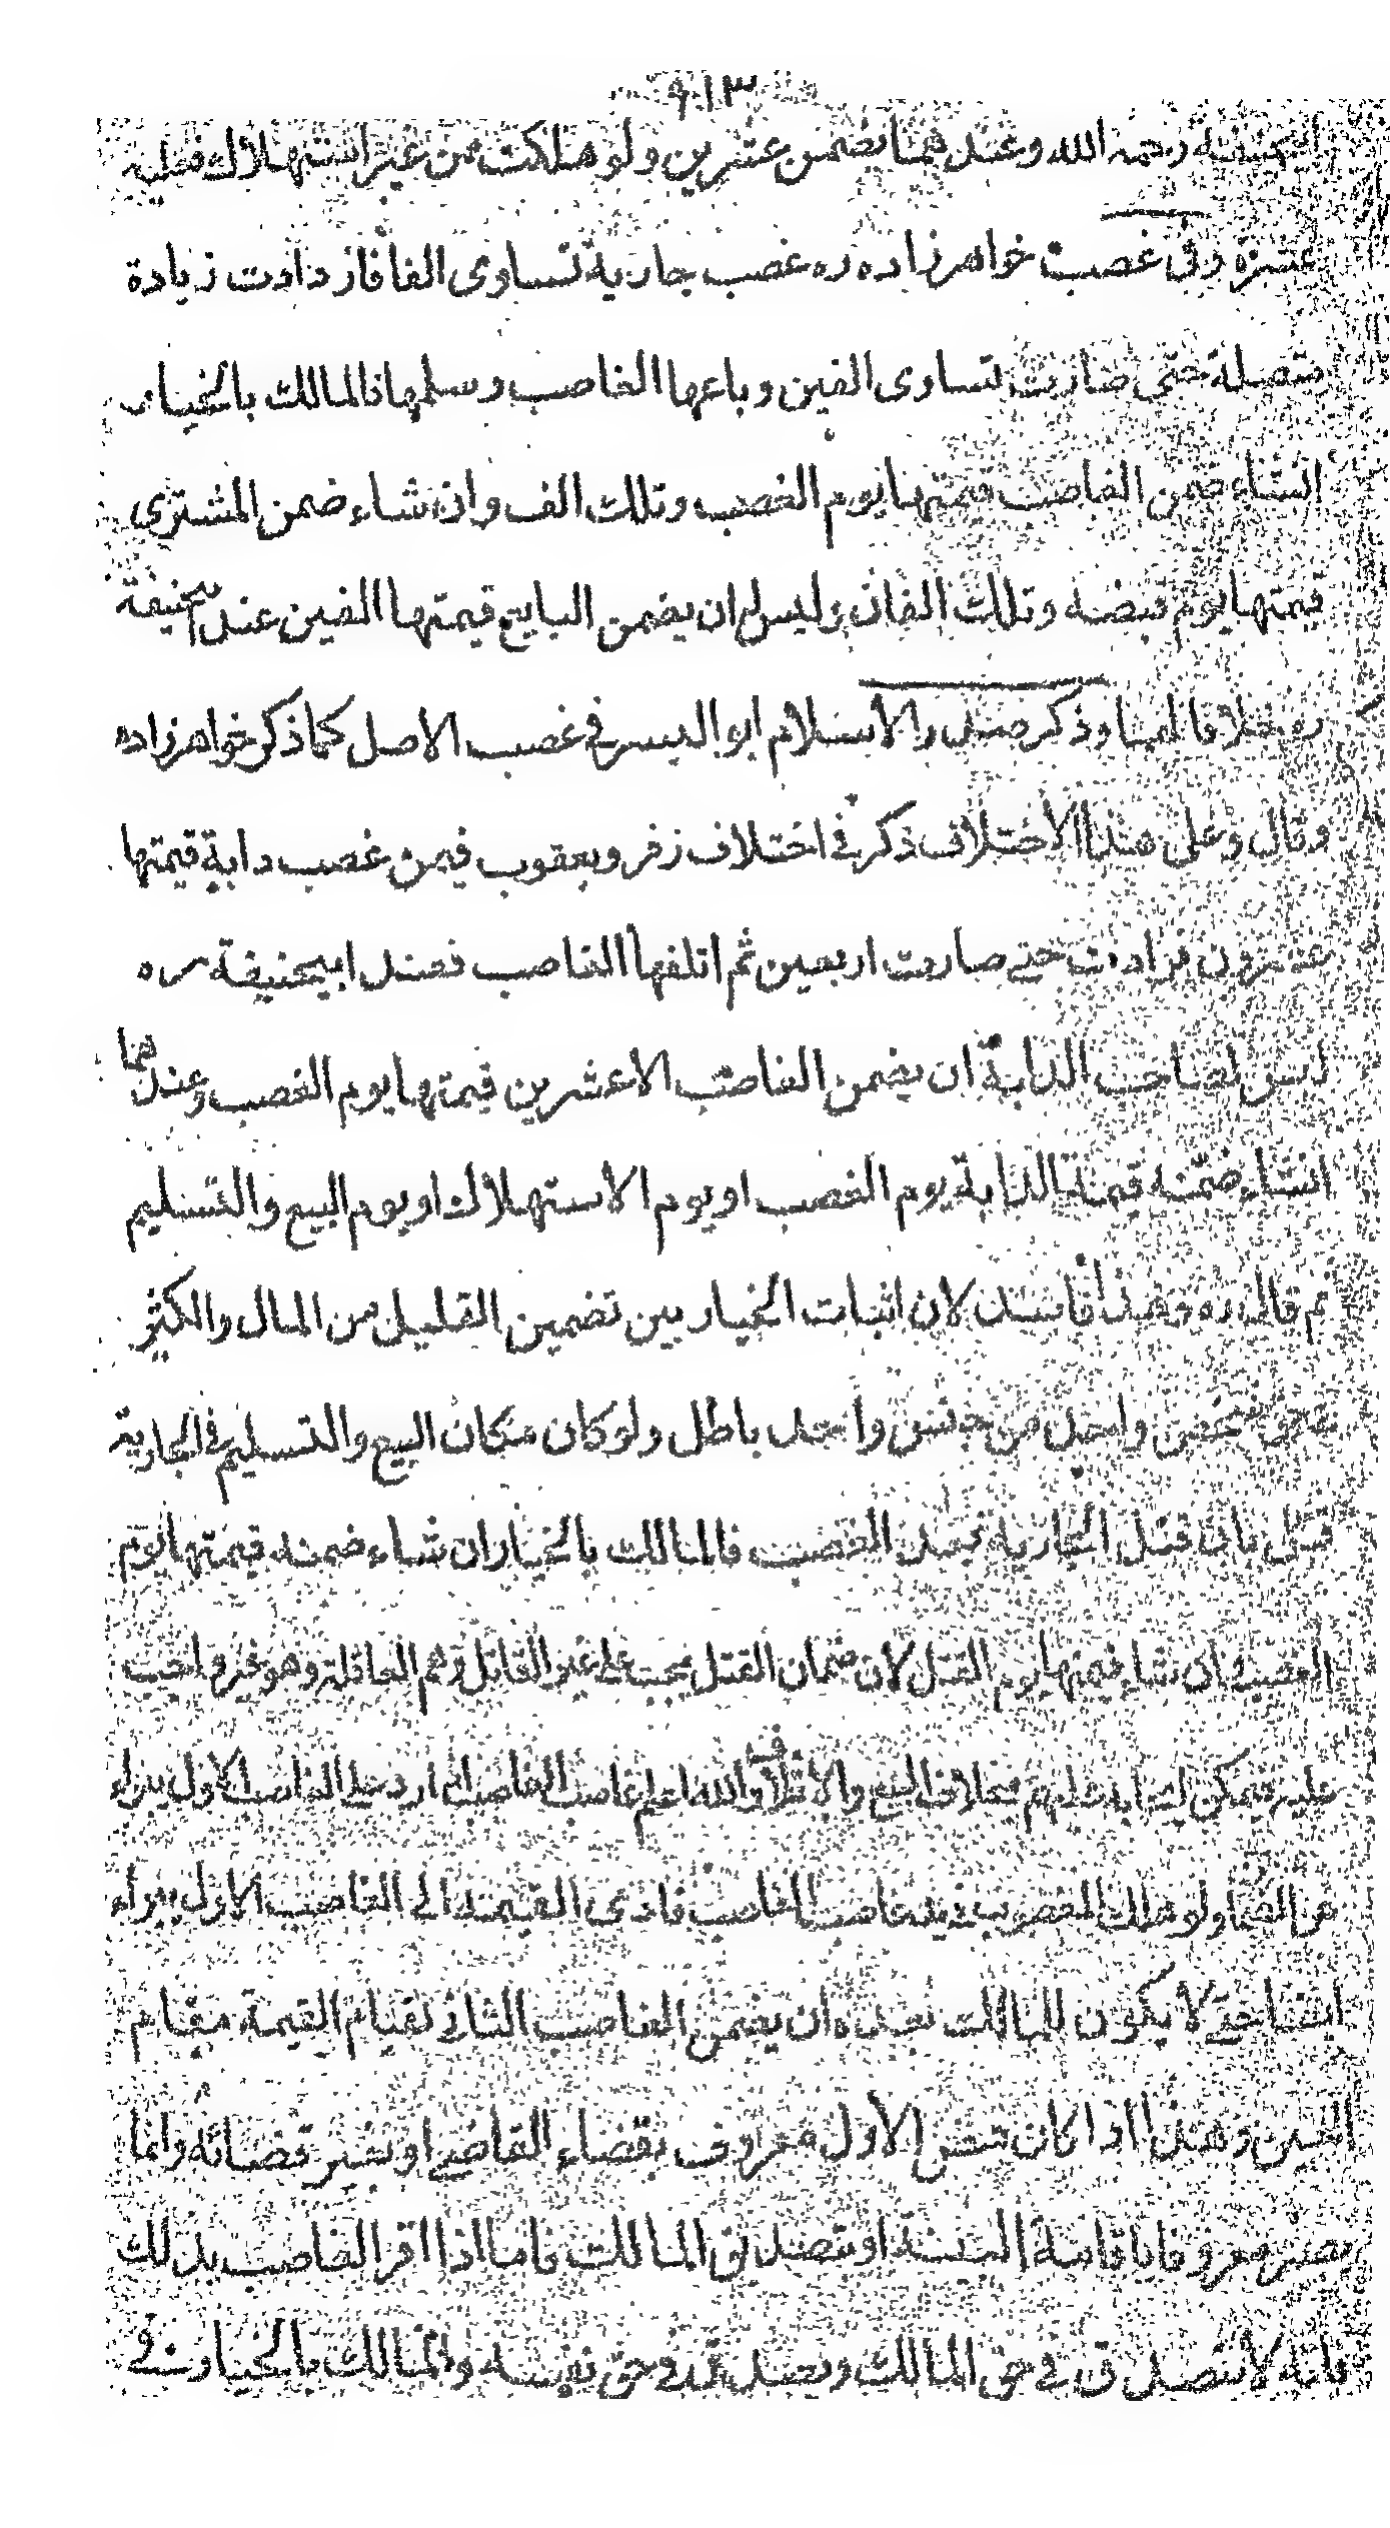 ٩١٣
ابيحنيفة رحمه الله وعندهما يضمن عشرين ولو هلكت من غير استهلاك فعليه
عشرة وفى غصب خواهرزاده ره غصب جارية تساوى الفا فازدادت زيادة
متصلة حتى صارت تساوى الفين وباعها الغاصب وسلمها فالمالك بالخيار
انشاء ضمن الغاصب قيمتها يوم الغصب وتلك الف وان شاء ضمن المشترى
قيمتها يوم قبضه وتلك الفان وليس له ان يضمن البايع قيمتها الفين عند ابيحنيفة
ره خلافا لهما وذكر صدر الاسلام ابو اليسر فى غصب الاصل كما ذكر خواهرزاده
وقال وعلى هذا الاختلاف ذكر فى اختلاف زفر ويعقوب فيمن غصب دابة قيمتها
عشرون فزادت حتى صارت اربعين ثم اتلفها الغاصب فعند ابيحنيفة ره
ليس لصاحب الدابة ان يضمن الغاصب الا عشرين قيمتها يوم الغصب وعندهما
انشاء ضمنه قيمة الدابة يوم الغصب او يوم الاستهلاك او يوم البيع والتسليم
ثم قال ره وهذا فاسد لان اثبات الخيار بين تضمين القليل من المال والكثير
فى حق شخص واحد من جنس واحد باطل ولو كان مكان البيع والتسليم فى الجارية
قتل بان قتل الجارية بعد الغصب فالمالك بالخيار ان شاء ضمنه قيمتها يوم
الغصب وان شاء قيمتها يوم القتل لان ضمان القتل يجب على غير القاتل وهم العاقلة وهو غير واجب
والله اعلم غاصب الغاصب اذا رد على الغاصب الاول يبراء
عن الضمان ولو هلك المغصوب فى يد غاصب الغاصب فادى القيمة الى الغاصب الاول يبراء
ايضا حتى لا يكون للمالك بعده ان يضمن الغاصب الثانى لقيام القيمة مقام
العين وهذا اذا كان قبض الاول معروف بقضاء القاضى او بغير قضائه وانما
يصير معروفا باقامة البينة او بتصديق المالك فاما اذا اقر الغاصب بذلك
فانه لا يصدق فى حق المالك ويصدق فى حق نفسه والمالك بالخيار فى